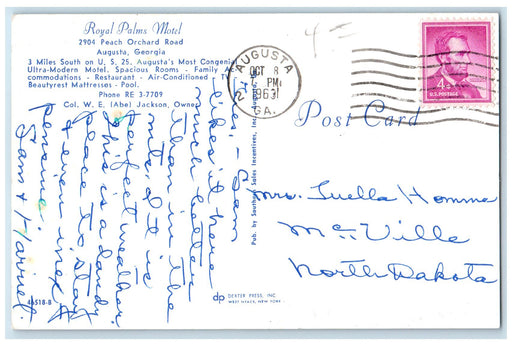 Royal Palms Motel
2904 Peach Orchard Road
Augusta, Georgia
3 Miles South on U. S. 25. Augusta's Most Congenial
Ultra-Modern Motel. Spacious Rooms - Family Ac-
commodations - Restaurant - Air-Conditioned - TV
Beautyrest Mattresses - Pool.
Phone RE 3-7709
Col. W. E. (Abe) Jackson, Owner
AUGUSTA
OCT 8
PM
1963
GA.
2
4¢
U.S. POSTAGE
Post Card
Sam
likes it here
much better
than in the
mts, it is
perfect weather.
This is a dandy
place to stay
& even inex-
pensive.
Sam & Harriet.
Mrs. Luella Homme
McVille
North Dakota
Pub. by Southern Sales Incentives, Inc., Augusta, Ga.
46518-B
dp DEXTER PRESS, INC.
WEST NYACK, NEW YORK